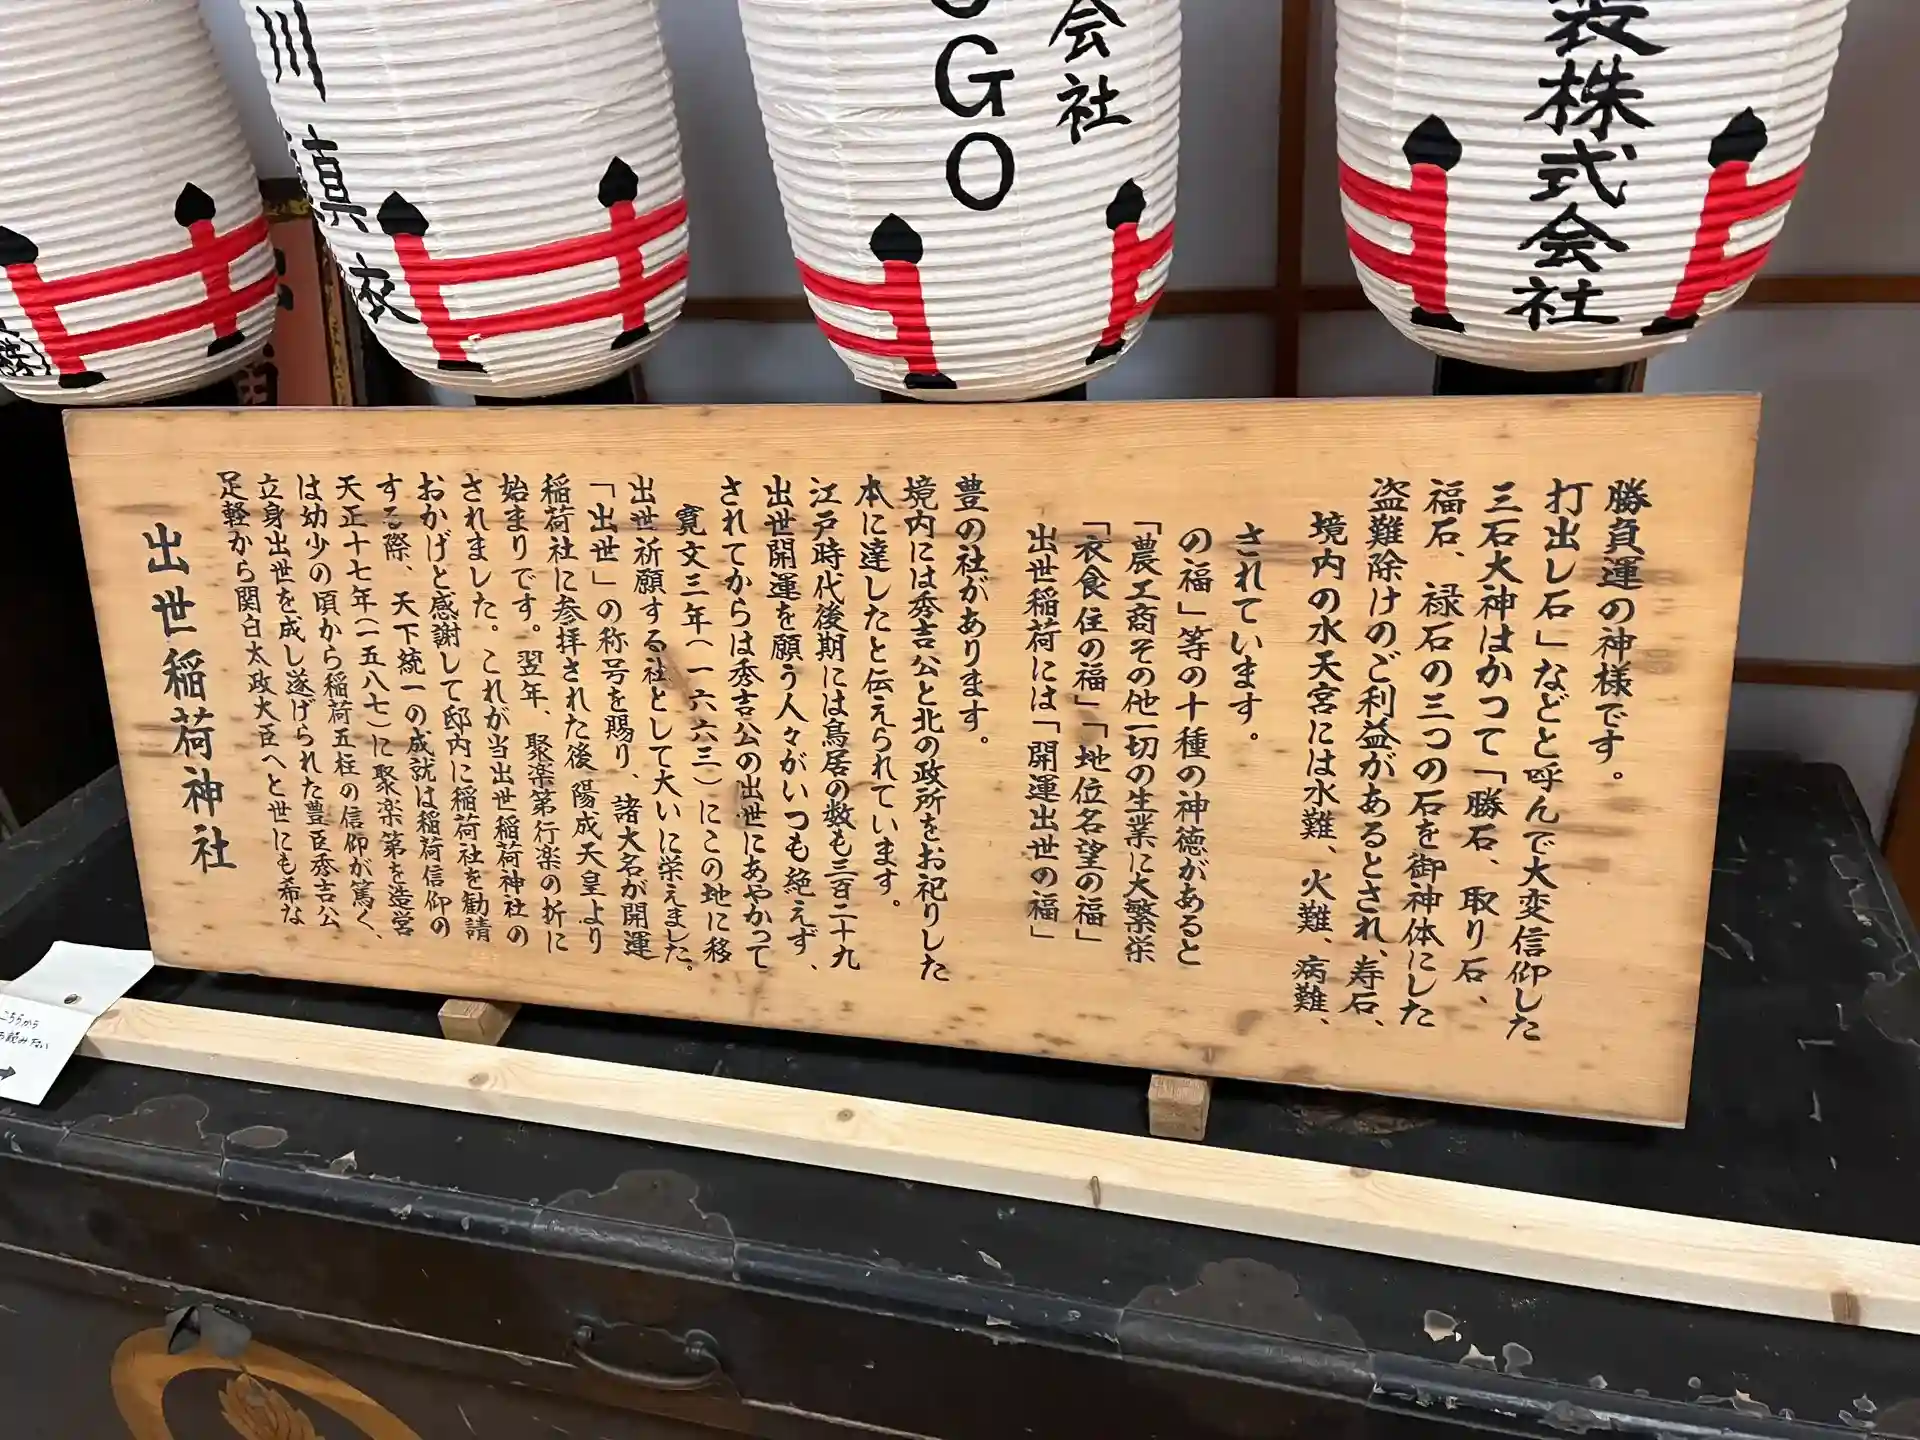 川眞衣
GO
会社
株式会社
出世稲荷神社
足軽から関白太政大臣へと世にも希な
立身出世を成し遂げられた豊臣秀吉公
は幼少の頃から稲荷五柱の信仰が篤く、
天正十七年(一五八七)に聚楽第を造営
する際、天下統一の成就は稲荷信仰の
おかげと感謝して邸内に稲荷社を勧請
されました。これが当出世稲荷神社の
始まりです。翌年、聚楽第行楽の折に
稲荷社に参拝された後陽成天皇より
「出世」の称号を賜り、諸大名が開運
出世祈願する社として大いに栄えました。
寛文三年(一六六三)にこの地に移
されてからは秀吉公の出世にあやかって
出世開運を願う人々がいつも絶えず、
江戸時代後期には鳥居の数も三百二十九
本に達したと伝えられています。
境内には秀吉公と北の政所をお祀りした
豊の社があります。
出世稲荷には「開運出世の福」
「衣食住の福」「地位名望の福」
「農工商その他一切の生業に大繁栄
の福」等の十種の神徳があると
されています。
境内の水天宮には水難、火難、病難、
盗難除けのご利益があるとされ、寿石、
福石、禄石の三つの石を御神体にした
三石大神はかつて「勝石、取り石、
打出し石」などと呼んで大変信仰した
勝負運の神様です。
こちらから
→